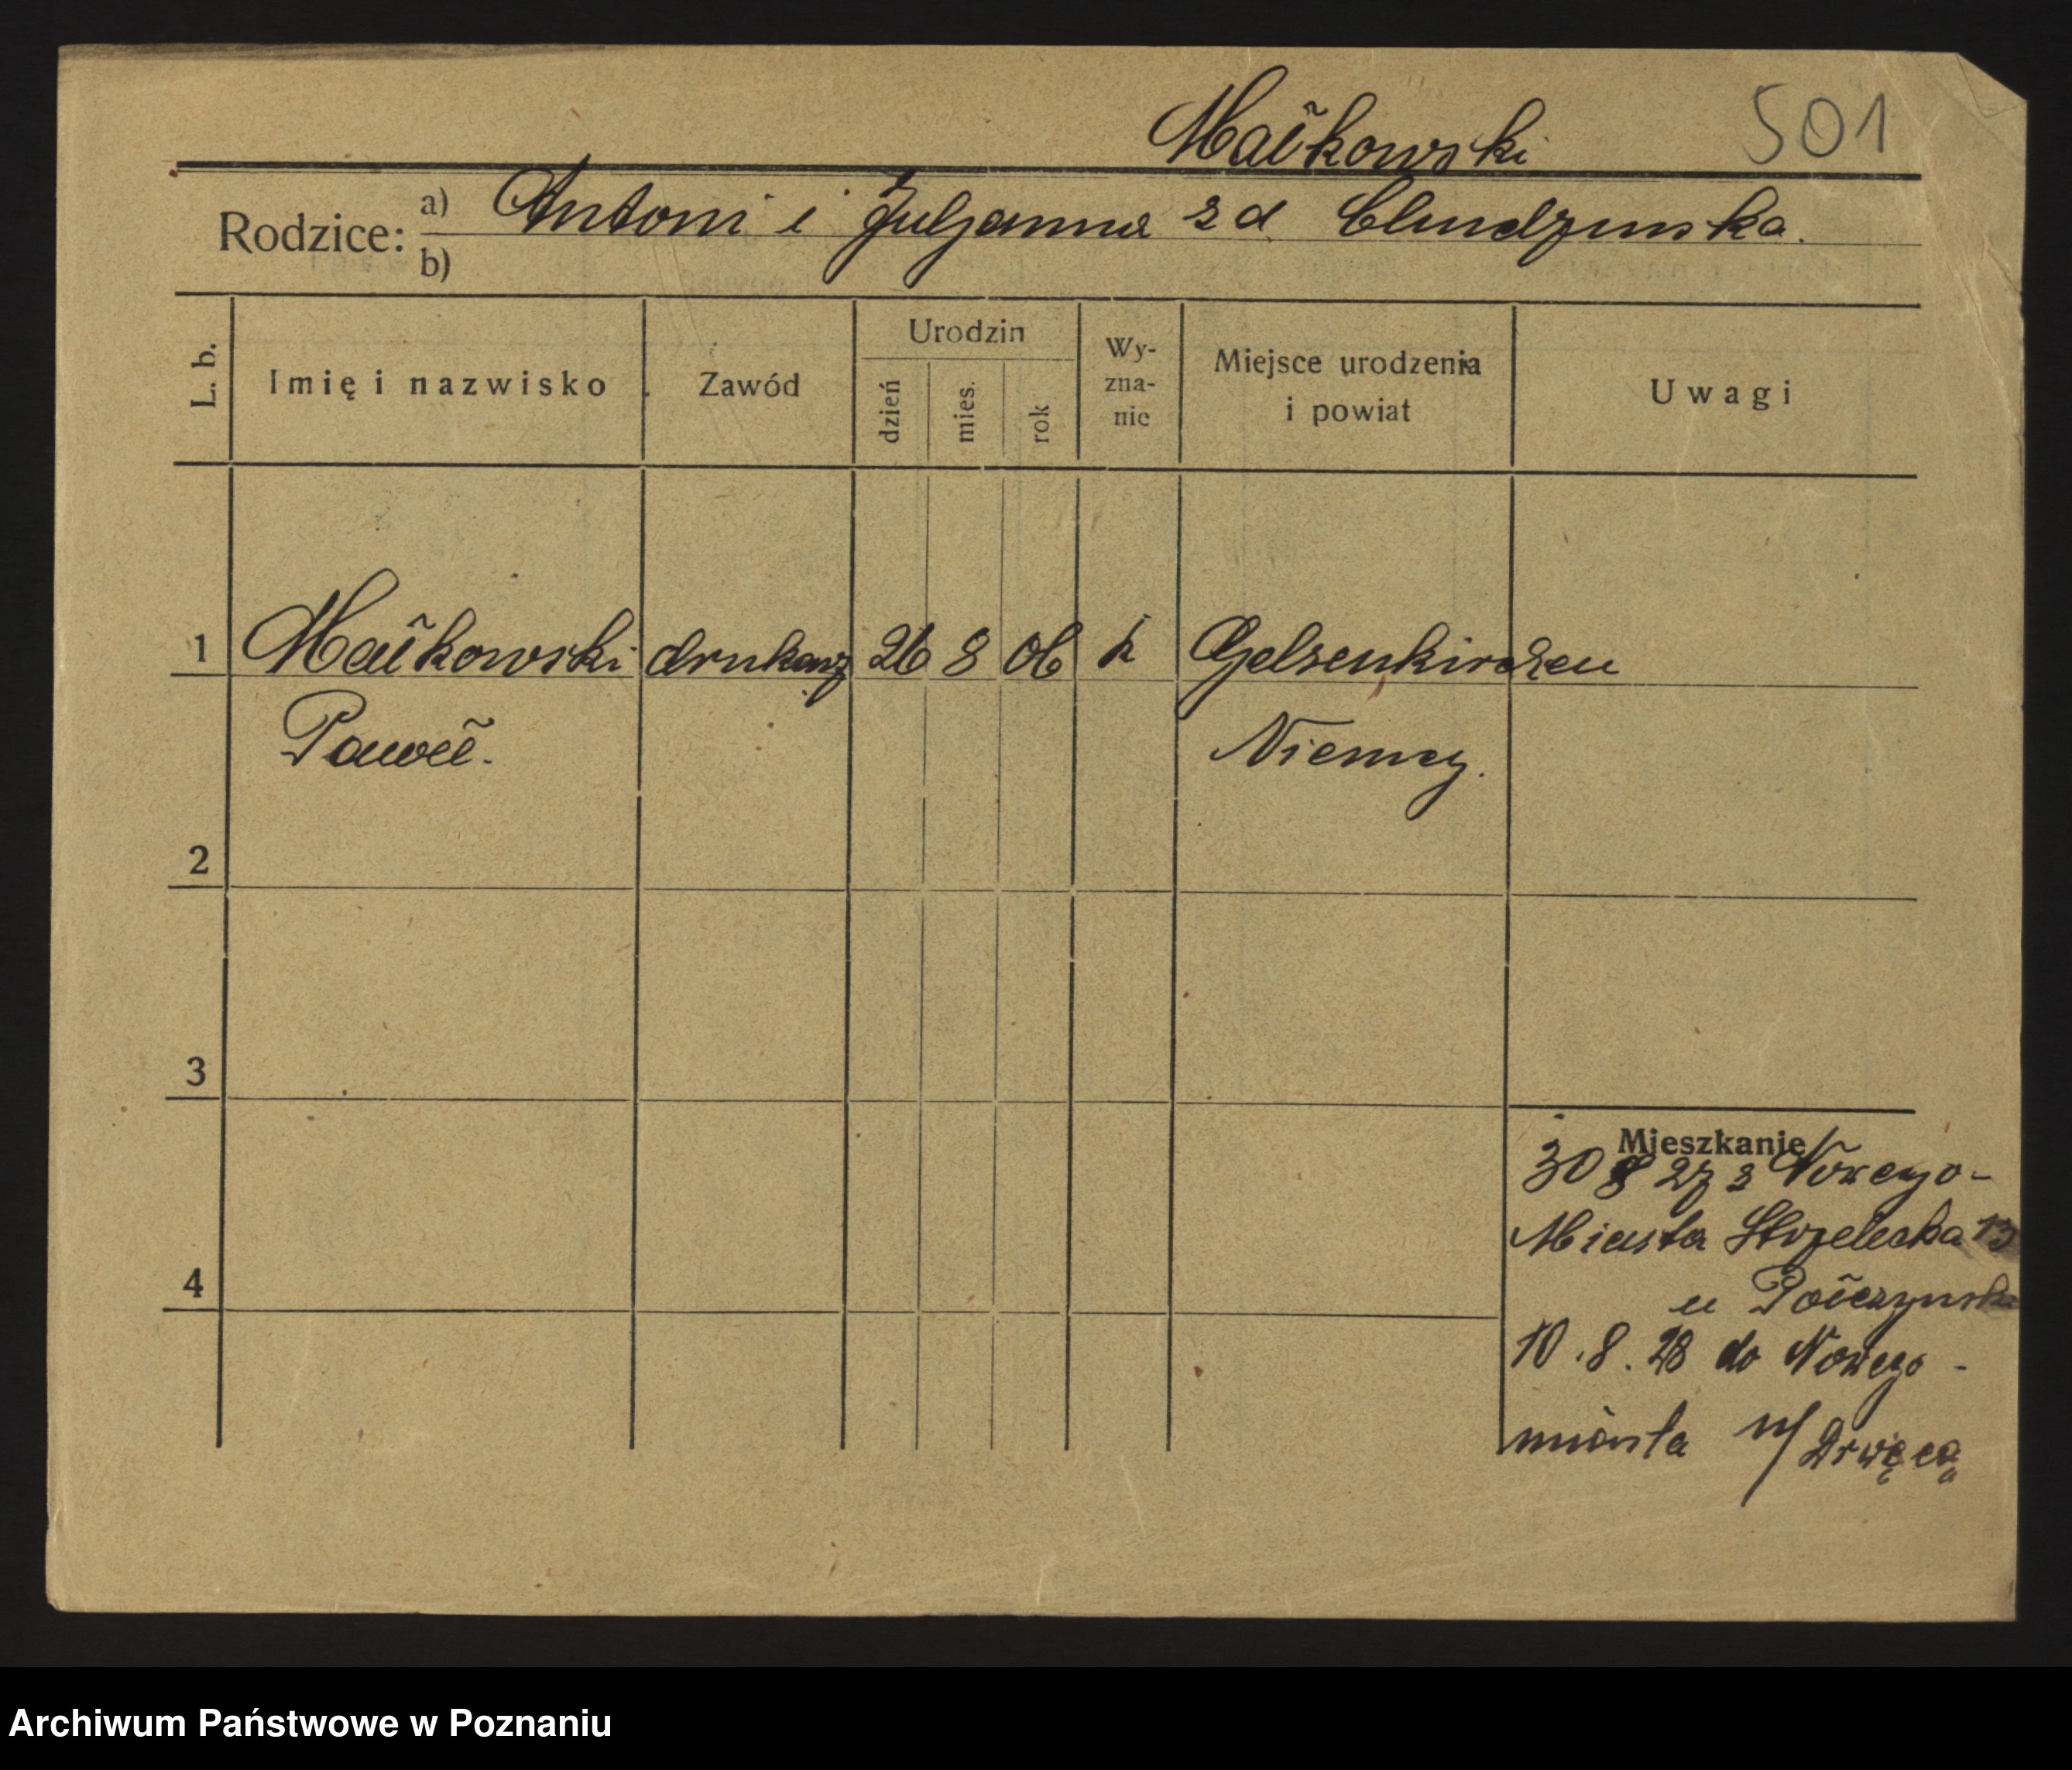 Małkowski 501
Rodzice: a) Antoni i Juljanna z d Chudzinska.
b)
L. b. Imię i nazwisko Zawód Urodzin dzień mies. rok Wyzna- nie Miejsce urodzenia i powiat Uwagi
1 Małkowski drukarz 26 8 06 k Gelsenkirchen
Paweł. Niemcy.
2
3
Mieszkanie
30 8 27 z Nowego-
Miasta Strzelecka 13
4
u
10.8.28 do Nowego-
miasta n/Drwęcą
Archiwum Państwowe w Poznaniu